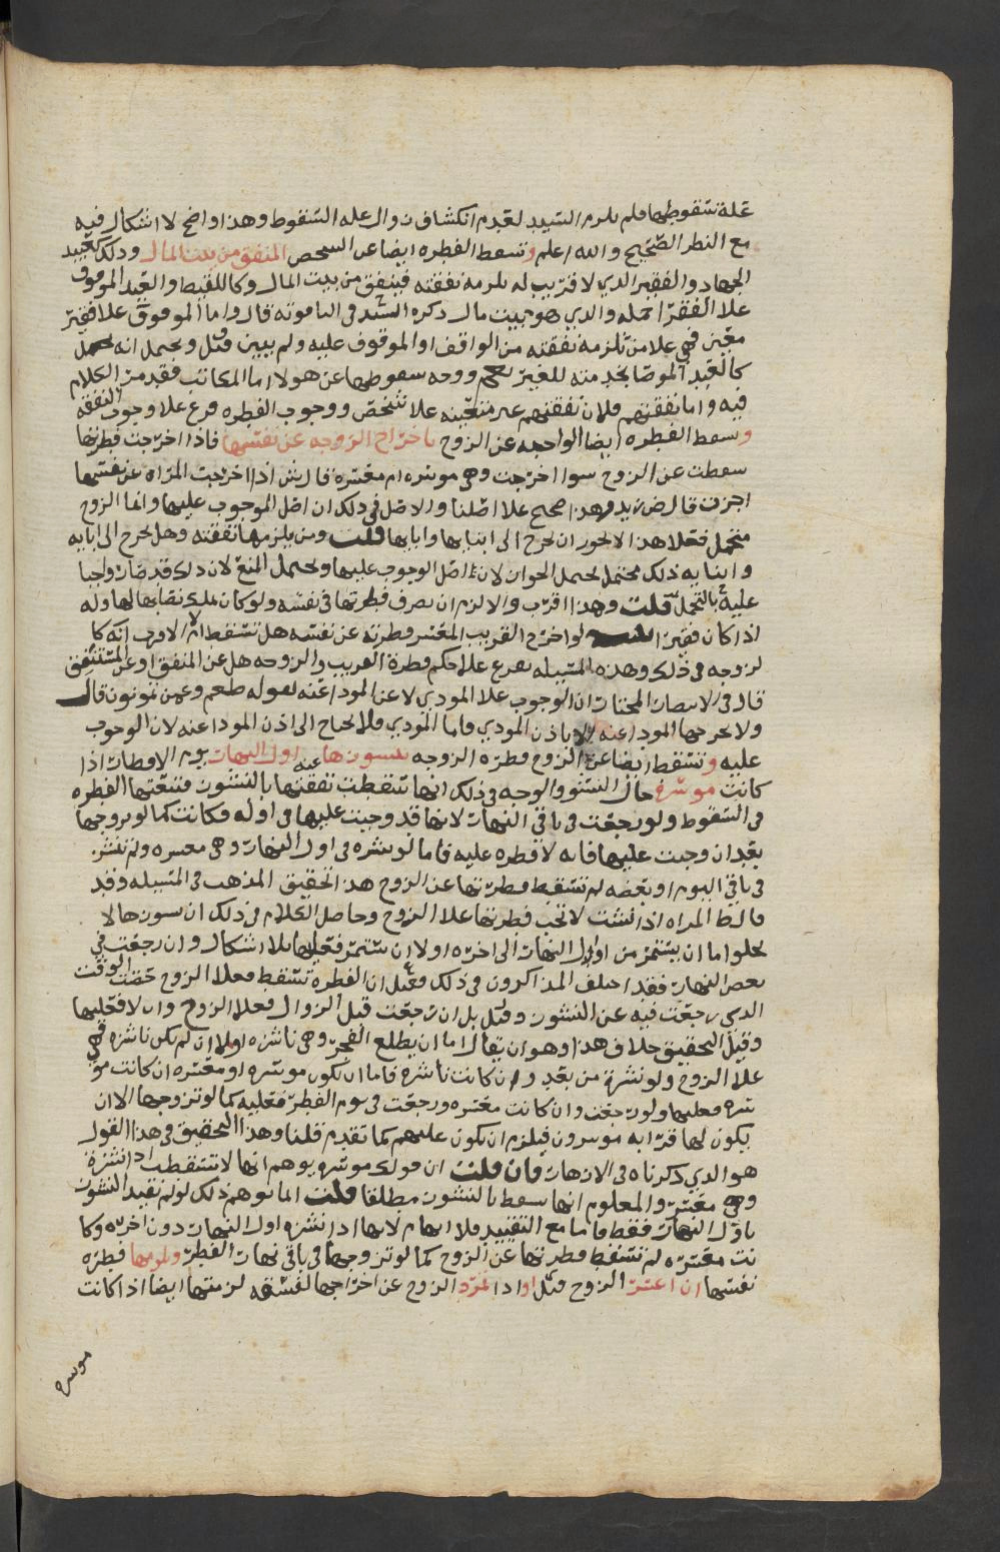 علة سقوطها فلم يلزم السيد لعدم انكشاف زوال عله السقوط وهذا واضح لا اشكال فيه
مع النظر الصحيح والله اعلم وتسقط الفطره ايضا عن الشخص المنفق من بيت المال وذلك كعبيد
الجهاد والفقير الذي لا قريب له يلزمه نفقته فينفق من بيت المال وكاللقيط والعبد الموقوف
علا الفقرا جمله والذي هو بيت مال ذكره السيد في الياقوته قال واما الموقوف علا فقير
معين فهي علا من تلزمه نفقته من الواقف او الموقوف عليه ولم يبين وقيل ويحتمل انه
كالعبد الموصا بخدمته للغير ووجه سقوطها عن هولا اما المكاتب فقد مر الكلام
فيه واما نفقتهم فلان نفقتهم غير متعينه علا شخص ووجوب الفطره فرع علا وجوب النفقه
وتسقط الفطره ايضا الواجبه عن الزوج باخراج الزوجه عن نفسها فاذا اخرجت فطرتها
سقطت عن الزوج سوا اخرجت وهي موسره ام معسره قال ش اذا اخرجت المراه عن نفسها
اجزت قال ض زيد وهذا صحيح علا اصلنا والاصل في ذلك ان اصل الوجوب عليها وانما الزوج
متحمل فعلا هذا الا يجوز ان تخرج الى ابنايها وابايها قلت ومن يلزمها نفقته وهل تخرج الى ابايه
وابنايه ذلك محتمل يحتمل الجواز لان اصل الوجوب عليها ويحتمل المنع لان ذلك قد صار واجبا
عليه بالتحمل قلت وهذا اقرب والا لزم ان يصرف فطرتها في نفسه ولو كان يملك نصابها لها وله
اذا كان فقيرا لو اخرج القريب المعسر فطرته عن نفسه هل تسقط ام لا الاقرب انه كا
لزوجه في ذلك وهذه المسيله تفرع علا حكم فطرة القريب والزوجه هل عن المنفق او عن المستنفق
قال في الانتصار المختار ان الوجوب علا المودي لا عن المودا عنه لقوله صلعم وعمن تمونون قال
ولا يخرجها المودا عنه الا باذن المودي واما المودي فلا يحتاج الى اذن المودا عنه لان الوجوب
عليه وتسقط ايضا عن الزوج فطره الزوجه بنشوزها عنه اول النهار يوم الافطار اذا
كانت موسره حال النشوز والوجه في ذلك انها سقطت نفقتها بالنشوز فتبعتها الفطره
في السقوط ولو رجعت في باقي النهار لانها قد وجبت عليها في اوله فكانت كما لو تزوجها
بعد ان وجبت عليها فانه لا فطره عليه فاما لو نشزه في اول النهار وهي معسره ولم تنشز
في باقي اليوم او بعضه لم تسقط فطرتها عن الزوج هذا تحقيق المذهب في المسيله وقد
قال ط المراه اذا نشت لا تجب فطرتها علا الزوج وحاصل الكلام في ذلك ان نشوزها لا
يخلو اما ان يستمر من اول النهار الى اخره اولا ان ستمر فعليها بلا اشكال وان رجعت في
بعض النهار فقد اختلف المذاكرون في ذلك فقيل ان الفطرة تسقط فعلا الزوج حصت الوقت
الذي رجعت فيه عن النشوز وقيل بل ان رجعت قبل الزوال فعلا الزوج وان لا فعليها
وقيل التحقيق خلاف هذا وهو ان يقال اما ان يطلع الفجر وهي ناشزه اولا ان لم تكن ناشزه فهي
علا الزوج ولو نشزة من بعد وان كانت ناشزه فاما ان تكون موسره او معسره ان كانت مو
سره فعليها ولو رجعت وان كانت معسره ورجعت في يوم الفطر فعليه كما لو تزوجها الا ان
يكون لها قرابه موسرون فيلزم ان تكون عليهم كما تقدم قلنا وهذا التحقيق في هذا القول
هو الذي ذكرناه في الازهار فان قلت ان قولك موسره يوهم انها لا تسقط اذا نشزة
وهي معسره والمعلوم انها تسقط بالنشوز مطلقا قلت انما توهم ذلك لو لم نقيد النشوز
باول النهار فقط فاما مع التقييد فلا ايهام لانها اذا نشزه اول النهار دون اخره وكا
نت معسره لم تسقط فطرتها عن الزوج كما لو تزوجها في باقي نهار الفطر ولزمها فطره
نفسها ان اعسر الزوج وقيل او اذا تمرد الزوج عن اخراجها لفسقه لزمتها ايضا اذا كانت
موسره